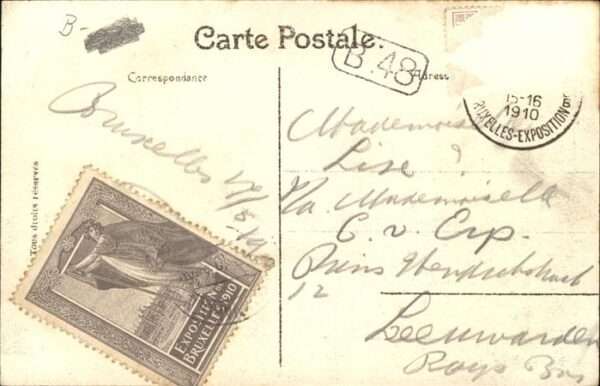 B-
Carte Postale.
B.48
Correspondance
Adresse
15-16
1910
BRUXELLES-EXPOSITION
Bruxelles 17/5-19
Tous droits réservés
EXPOSITION
BRUXELLES 1910
Mademoiselle
Lise
Mademoiselle
C. v. Erp.
Prins Hendrikstraat
12
Leeuwarden
Pays Bas